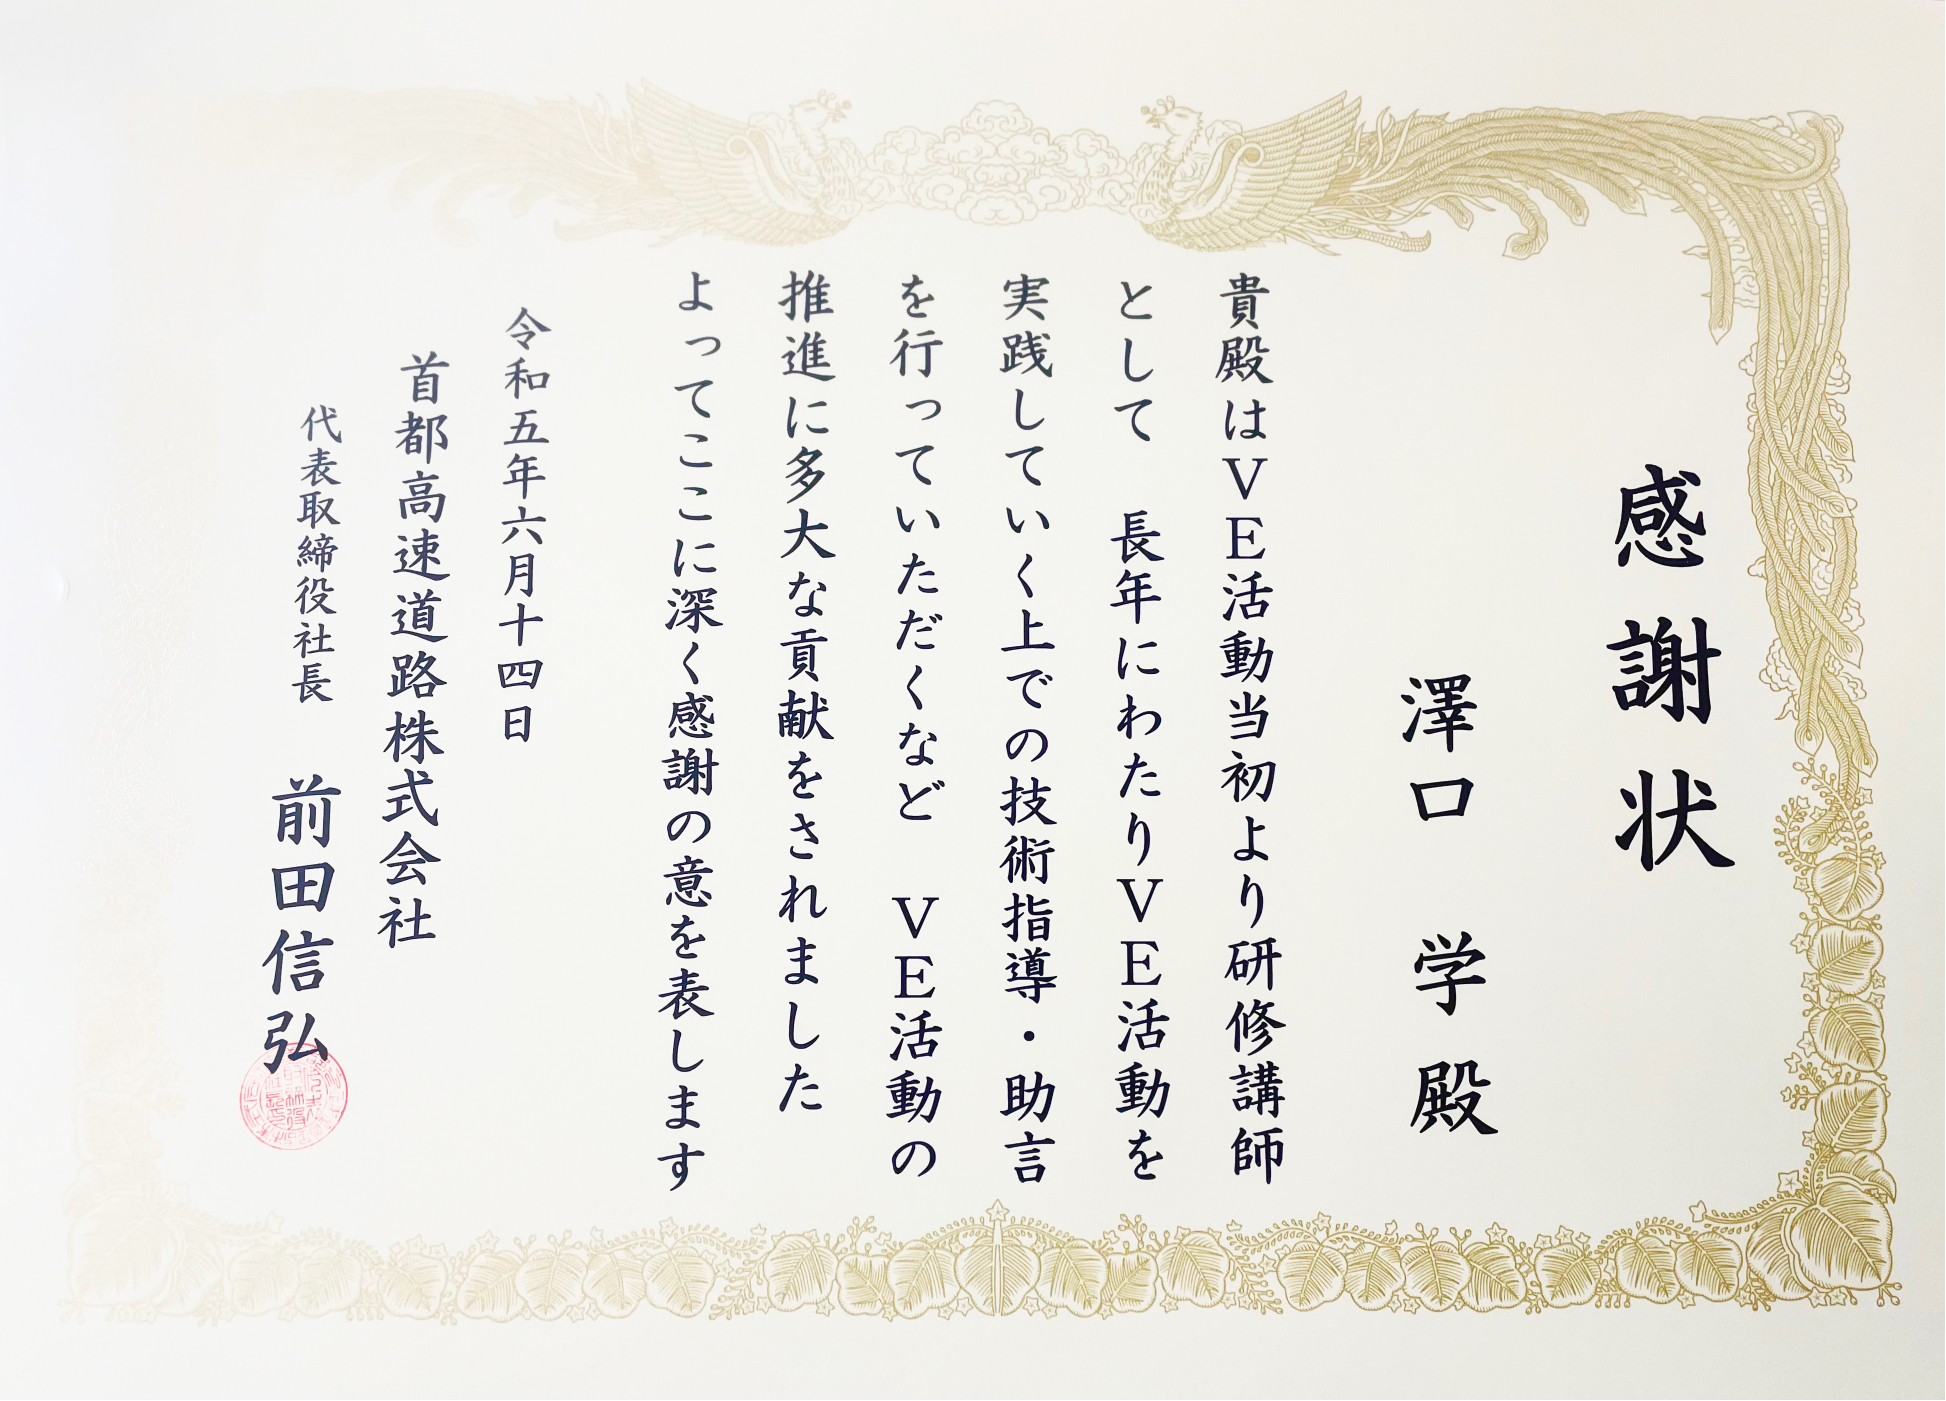 感謝状
澤口　学　殿
貴殿はＶＥ活動当初より研修講師
として　長年にわたりＶＥ活動を
実践していく上での技術指導・助言
を行っていただくなど　ＶＥ活動の
推進に多大な貢献をされました
よってここに深く感謝の意を表します
令和五年六月十四日
首都高速道路株式会社
代表取締役社長　前田信弘